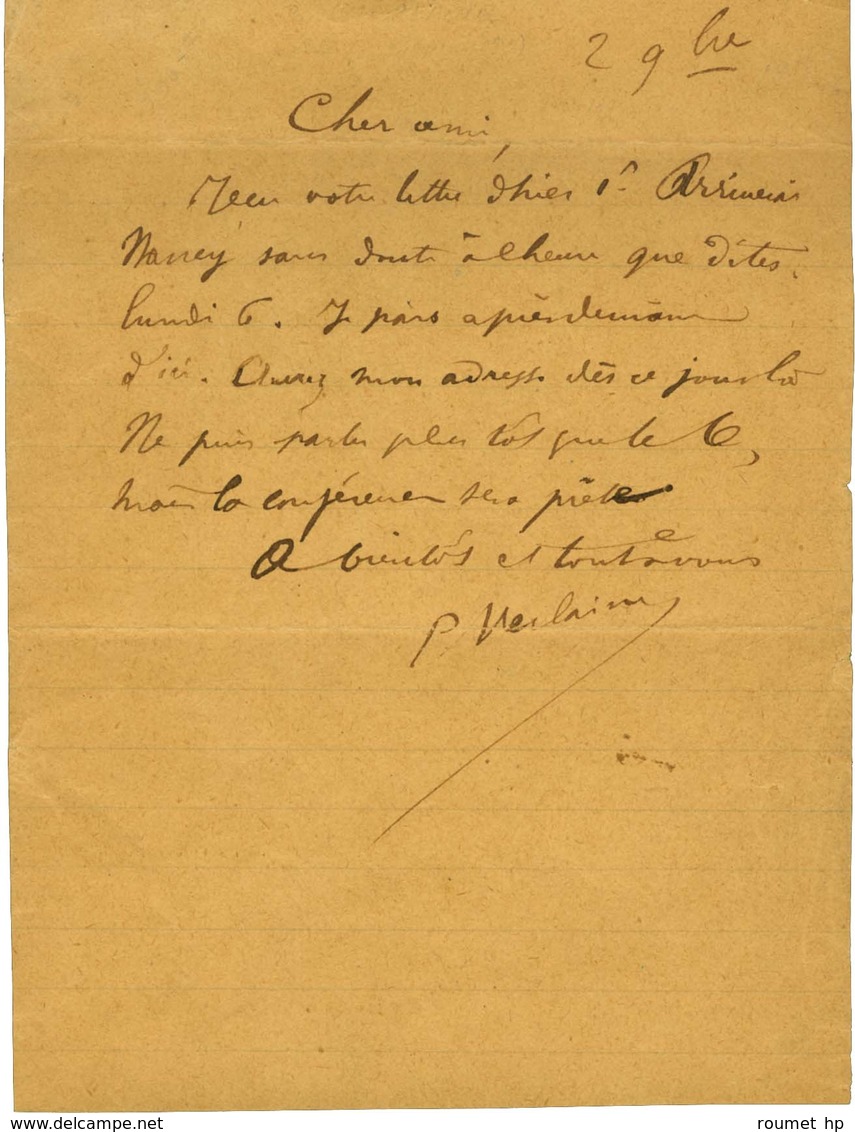 2 9bre
Cher ami,
Reçu votre lettre d'hier 1er. Arriverai
Nancy sans doute à l'heure que dites,
lundi 6. Je pars après demain
d'ici. Aurez mon adresse dès ce jour là
Ne puis parler plus tôt que le 6,
mais la conférence sera prête.
A bientôt et tout à vous
P. Verlaine
roumet hp